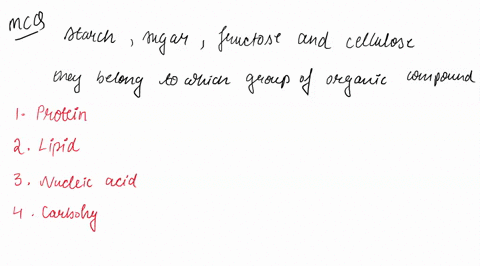 MCQ
starch , sugar , fructose and cellulose
they belong to which group of organic compound
1. Protein
2. Lipid
3. Nucleic acid
4. Carbohy